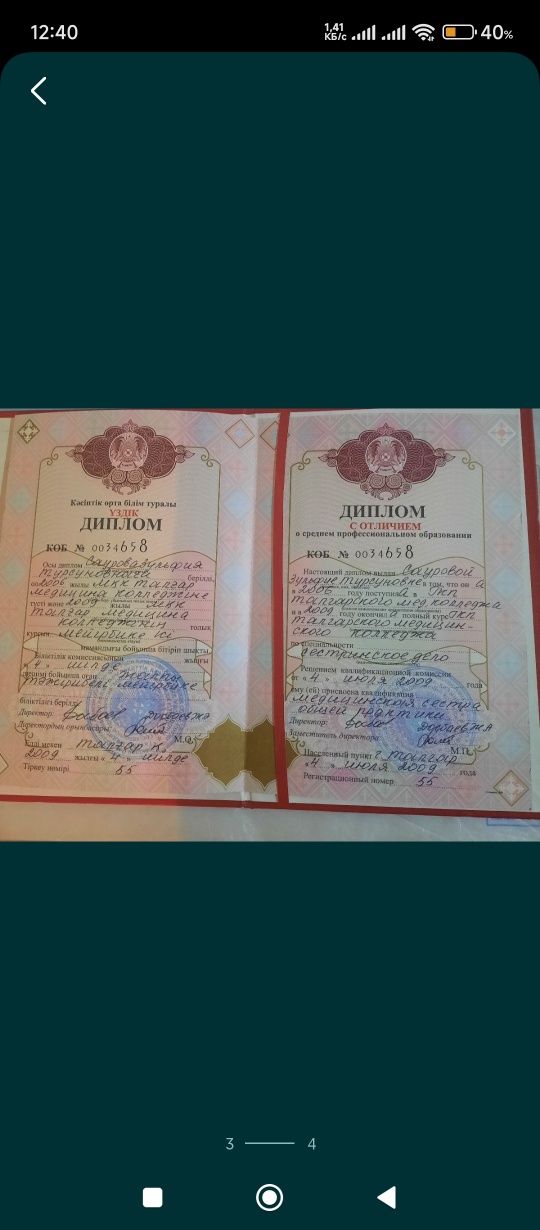 12:40
1,41
КБ/с
40%
Кәсіптік орта білім туралы
ҮЗДІК
ДИПЛОМ
КОБ № 0034658
Осы диплом Сауровазульфия
Турсуновнаға берілді,
ол 2006 жылы МКК Талғар
медицина колледжіне
түсті және 2009 жылы МКК
Талғар медицина
колледжінің толық
курсын мейірбике ісі
мамандығы бойынша бітіріп шықты.
Біліктілік комиссиясының жылғы
« 4 » шілде
шешімі бойынша оған Жалпы
тәжірибелі мейірбике
біліктілігі берілді
Директор: Довбаев ЖА
Директордың орынбасары
М.О.
Елді мекен Талғар қ.
2009 жылғы « 4 » шілде
Тіркеу нөмірі 55
ДИПЛОМ
С ОТЛИЧИЕМ
о среднем профессиональном образовании
КОБ № 0034658
Настоящий диплом выдан Сауровой
Зульфие Турсуновне в том, что он а
в 2006 году поступил а в ГКП
Талгарского мед.колледжа
и в 2009 году окончил а полный курс ГКП
Талгарского медицин-
ского колледжа
по специальности
сестринское дело
Решением квалификационной комиссии
от « 4 » июля 2009 года
ему (ей) присвоена квалификация
медицинская сестра
общей практики
Директор:
Заместитель директора
М.П.
Населенный пункт г. Талгар
« 4 » июля 2009 года
Регистрационный номер 55
3
4